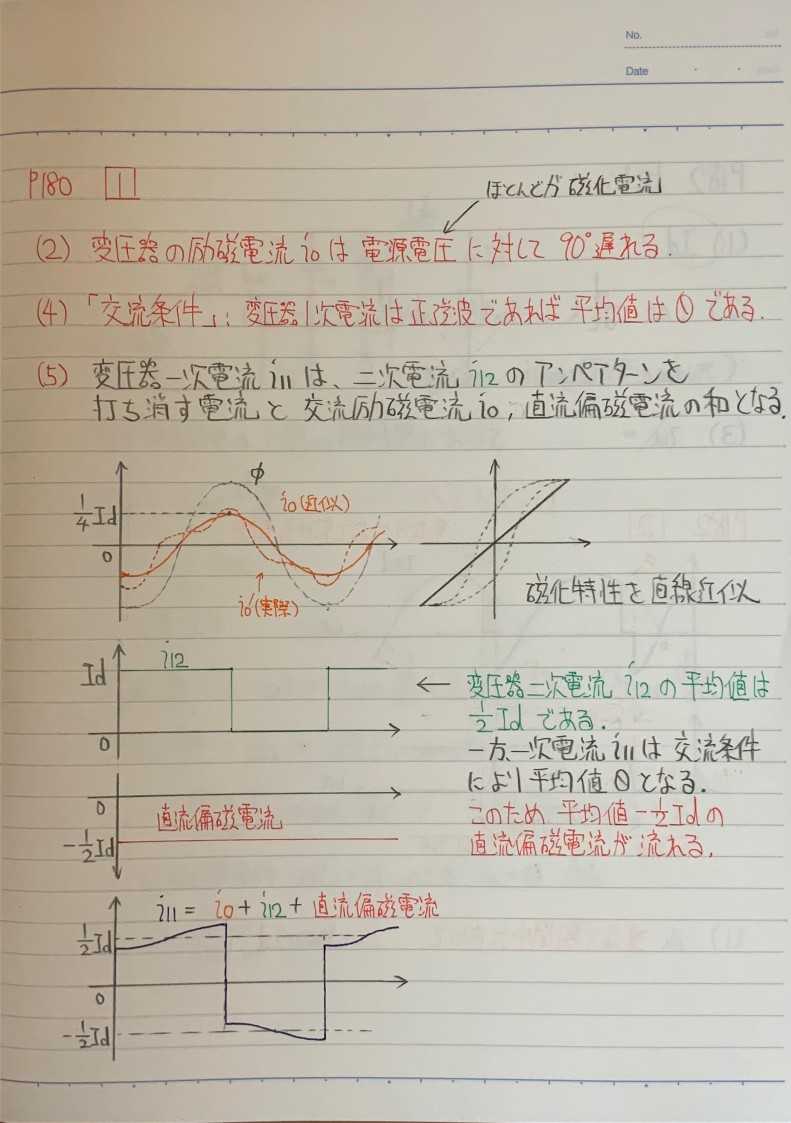 No.
Date
P180 1
ほとんどが磁化電流
(2) 変圧器の励磁電流 i0 は 電源電圧 に対して 90°遅れる.
(4) 「交流条件」: 変圧器1次電流は正弦波であれば 平均値は 0 である.
(5) 変圧器一次電流 i11 は、二次電流 i12 のアンペアターンを
打ち消す電流と 交流励磁電流 i0, 直流偏磁電流の和となる.
φ
i0(近似)
1/4 Id
0
i0'(実際)
磁化特性を直線近似
Id
i12
0
← 変圧器二次電流 i12 の平均値は
1/2 Id である.
一方、一次電流 i11 は 交流条件
により平均値 0 となる.
このため 平均値 -1/2 Id の
直流偏磁電流が流れる.
0
直流偏磁電流
-1/2 Id
i11 = i0 + i12 + 直流偏磁電流
1/2 Id
0
-1/2 Id